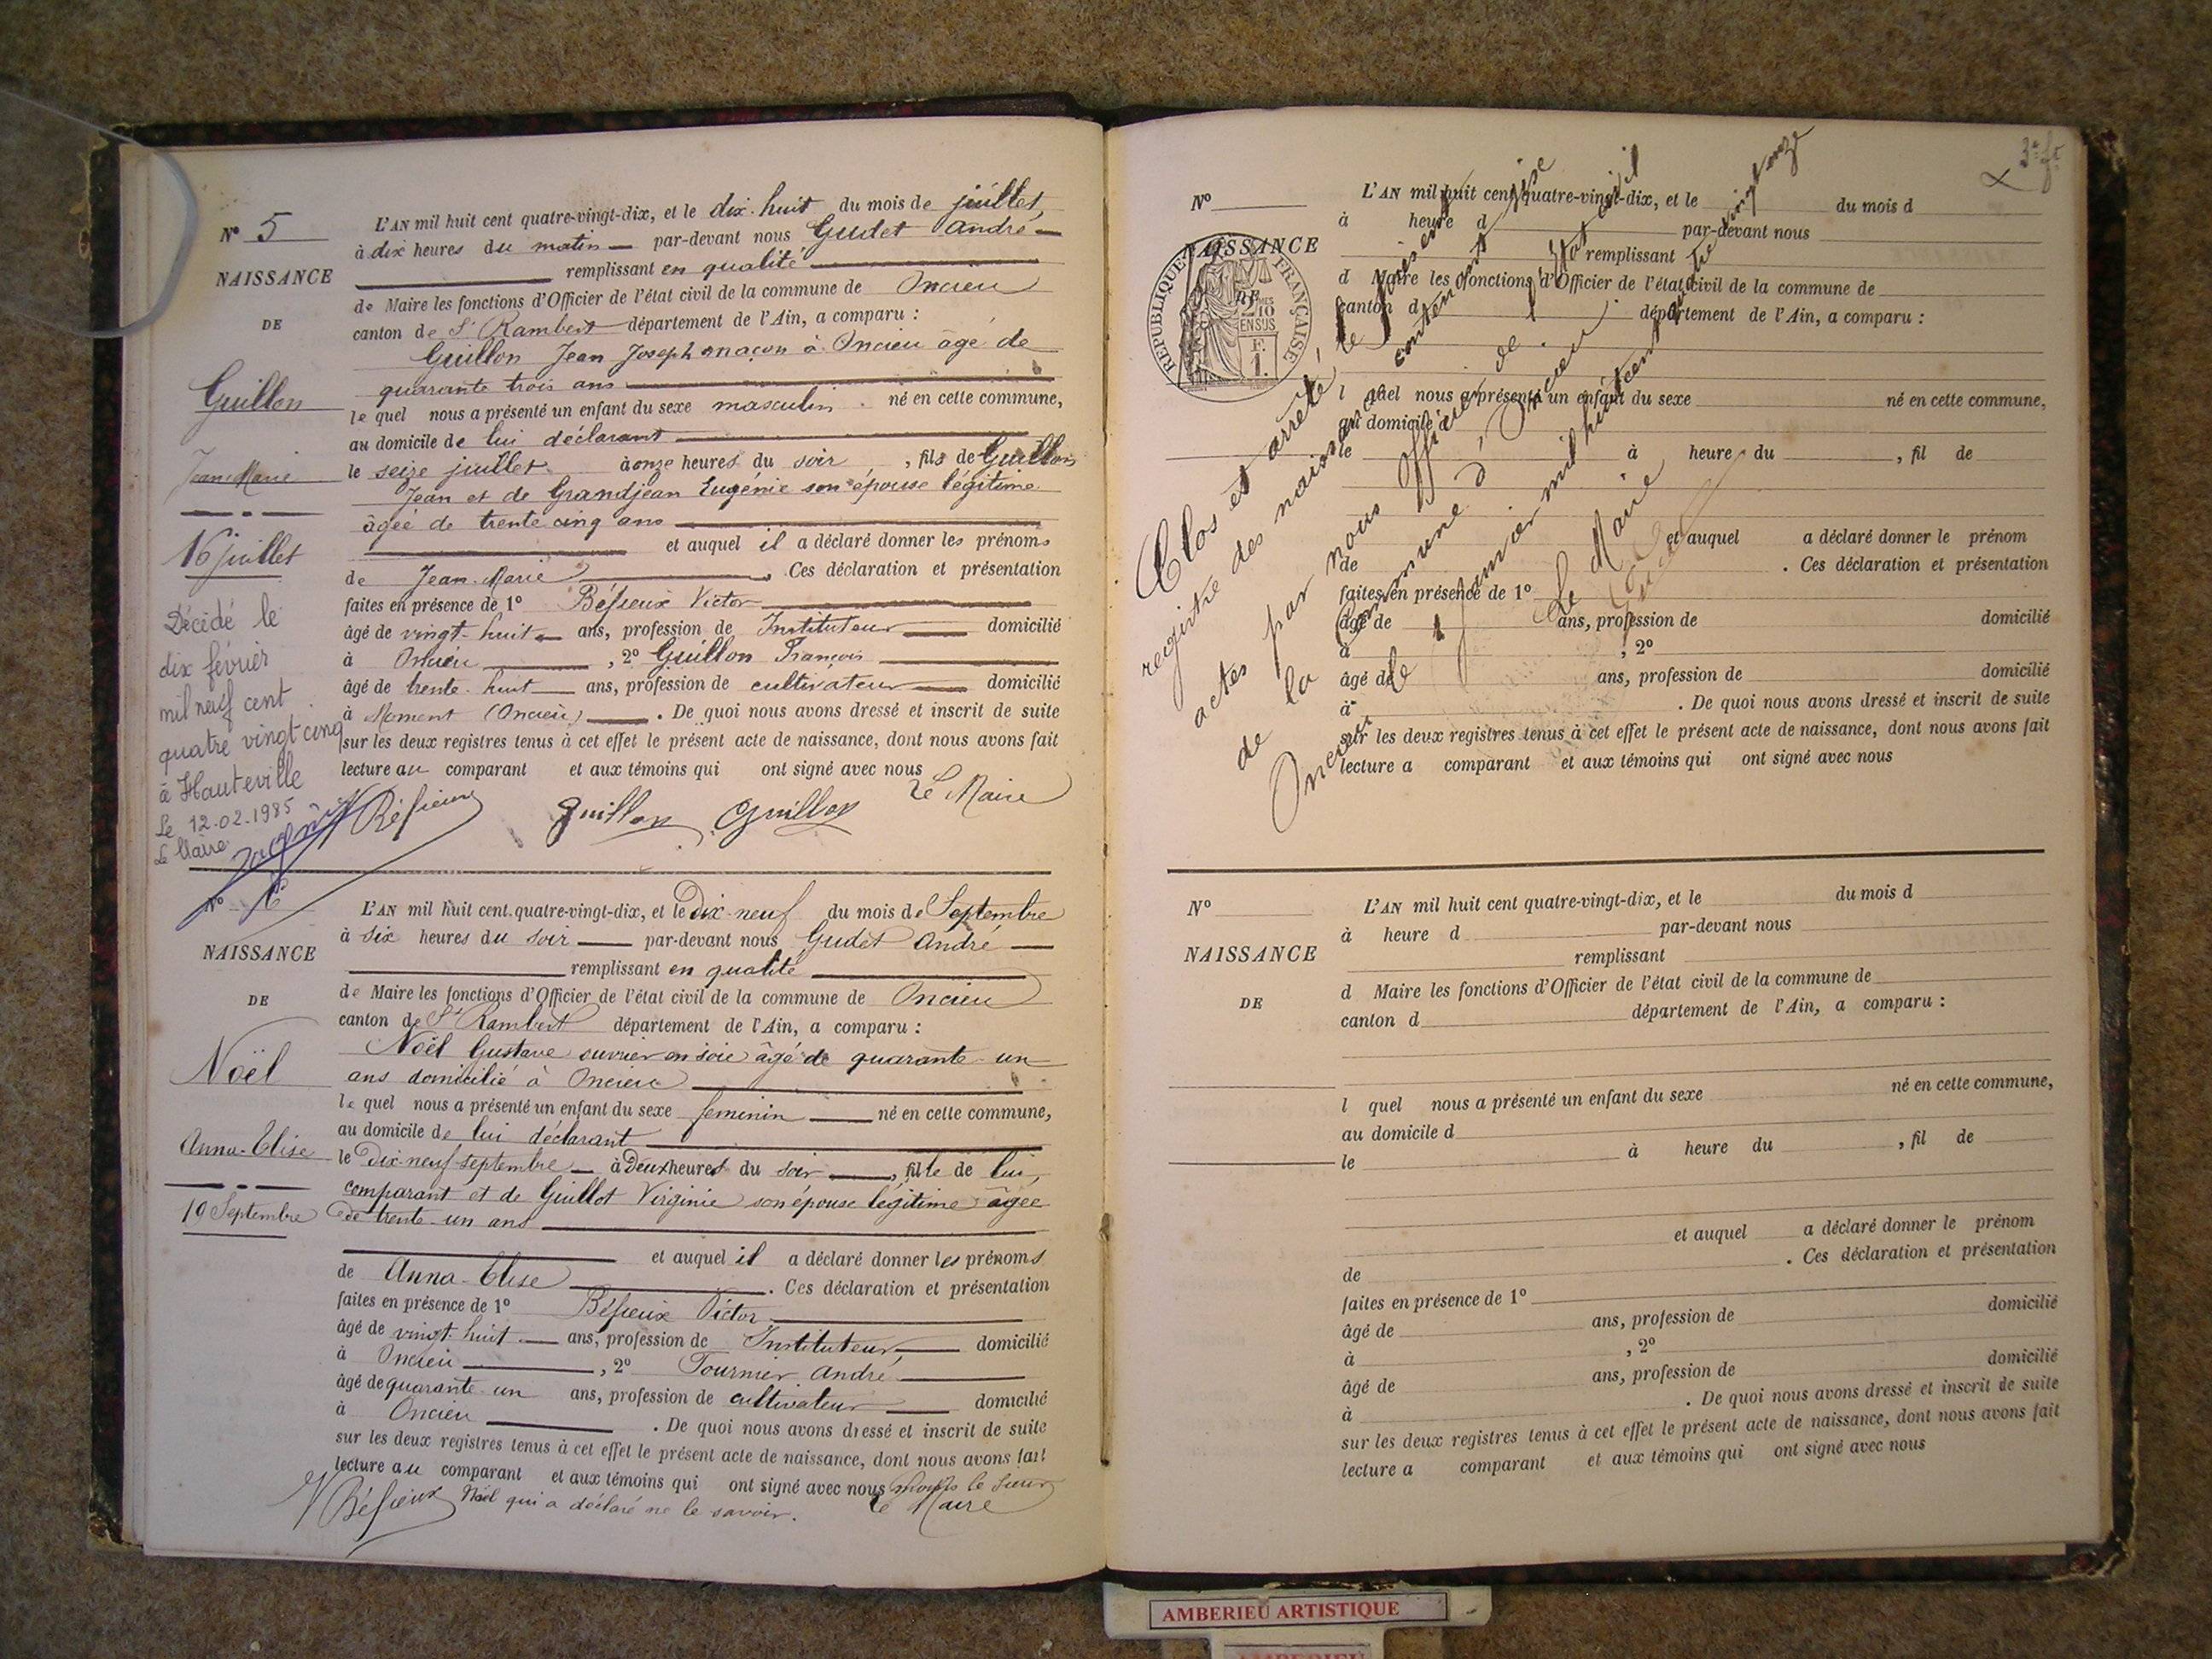 N° 5
NAISSANCE
DE
Guillon
Jean Marie
16 juillet
Décédé le
dix février
mil neuf cent
quatre vingt cinq
à Hauteville
Le 12.02.1985
Le Maire
L'AN mil huit cent quatre-vingt-dix, et le dix-huit du mois de juillet,
à dix heures du matin par-devant nous Gudet André
remplissant en qualité
de Maire les fonctions d'Officier de l'état civil de la commune de Oncieu
canton de St Rambert département de l'Ain, a comparu :
Guillon Jean Joseph maçon à Oncieu âgé de
quarante trois ans
le quel nous a présenté un enfant du sexe masculin né en cette commune,
au domicile de lui déclarant
le seize juillet à onze heures du soir, fils de Guillon
Jean et de Grandjean Eugénie son épouse légitime
âgée de trente cinq ans
et auquel il a déclaré donner les prénoms
de Jean-Marie. Ces déclaration et présentation
faites en présence de 1° Béssieux Victor
âgé de vingt-huit ans, profession de Instituteur domicilié
à Oncieu, 2° Guillon François
âgé de trente-huit ans, profession de cultivateur domicilié
à Moment (Oncieu). De quoi nous avons dressé et inscrit de suite
sur les deux registres tenus à cet effet le présent acte de naissance, dont nous avons fait
lecture au comparant et aux témoins qui ont signé avec nous
Le Maire
V Béssieux Guillon Guillon
N° 6
NAISSANCE
DE
Noël
Anna-Elise
19 Septembre
L'AN mil huit cent quatre-vingt-dix, et le Dix-neuf du mois de Septembre
à six heures du soir par-devant nous Gudet André
remplissant en qualité
de Maire les fonctions d'Officier de l'état civil de la commune de Oncieu
canton de St Rambert département de l'Ain, a comparu :
Noël Gustave ouvrier en soie âgé de quarante-un
ans domicilié à Oncieu
le quel nous a présenté un enfant du sexe feminin né en cette commune,
au domicile de lui déclarant
le Dix-neuf septembre à Deux heures du soir, fille de lui,
comparant et de Guillot Virginie son épouse légitime âgée
de trente-un ans
et auquel il a déclaré donner les prénoms
de Anna-Elise. Ces déclaration et présentation
faites en présence de 1° Béssieux Victor
âgé de vingt-huit ans, profession de Instituteur, domicilié
à Oncieu, 2° Tournier André
âgé de quarante-un ans, profession de cultivateur domicilié
à Oncieu. De quoi nous avons dressé et inscrit de suite
sur les deux registres tenus à cet effet le présent acte de naissance, dont nous avons fait
lecture au comparant et aux témoins qui ont signé avec nous moins le sieur
Noël qui a déclaré ne le savoir. Le Maire
V Béssieux
N°
NAISSANCE
REPUBLIQUE FRANÇAISE
2/10
EN SUS
F.
1.
L'AN mil huit cent quatre-vingt-dix, et le du mois d
à heure d par-devant nous
remplissant
d Maire les fonctions d'Officier de l'état civil de la commune de
canton d département de l'Ain, a comparu :
l quel nous a présenté un enfant du sexe né en cette commune,
au domicile d
le à heure du, fil de
et auquel a déclaré donner le prénom
de. Ces déclaration et présentation
faites en présence de 1°
âgé de ans, profession de domicilié
à, 2°
âgé de ans, profession de domicilié
à. De quoi nous avons dressé et inscrit de suite
sur les deux registres tenus à cet effet le présent acte de naissance, dont nous avons fait
lecture a comparant et aux témoins qui ont signé avec nous
Clos et arrêté le présent
registre des naissances contenant
actes par nous Officier de l'Etat civil
de la Commune d'Oncieu
Oncieu le 1 janvier mil huit cent quatre vingt onze
Le Maire
N°
NAISSANCE
DE
L'AN mil huit cent quatre-vingt-dix, et le du mois d
à heure d par-devant nous
remplissant
d Maire les fonctions d'Officier de l'état civil de la commune de
canton d département de l'Ain, a comparu :
l quel nous a présenté un enfant du sexe né en cette commune,
au domicile d
le à heure du, fil de
et auquel a déclaré donner le prénom
de. Ces déclaration et présentation
faites en présence de 1°
âgé de ans, profession de domicilié
à, 2°
âgé de ans, profession de domicilié
à. De quoi nous avons dressé et inscrit de suite
sur les deux registres tenus à cet effet le présent acte de naissance, dont nous avons fait
lecture a comparant et aux témoins qui ont signé avec nous
AMBERIEU ARTISTIQUE
AMBERIEU